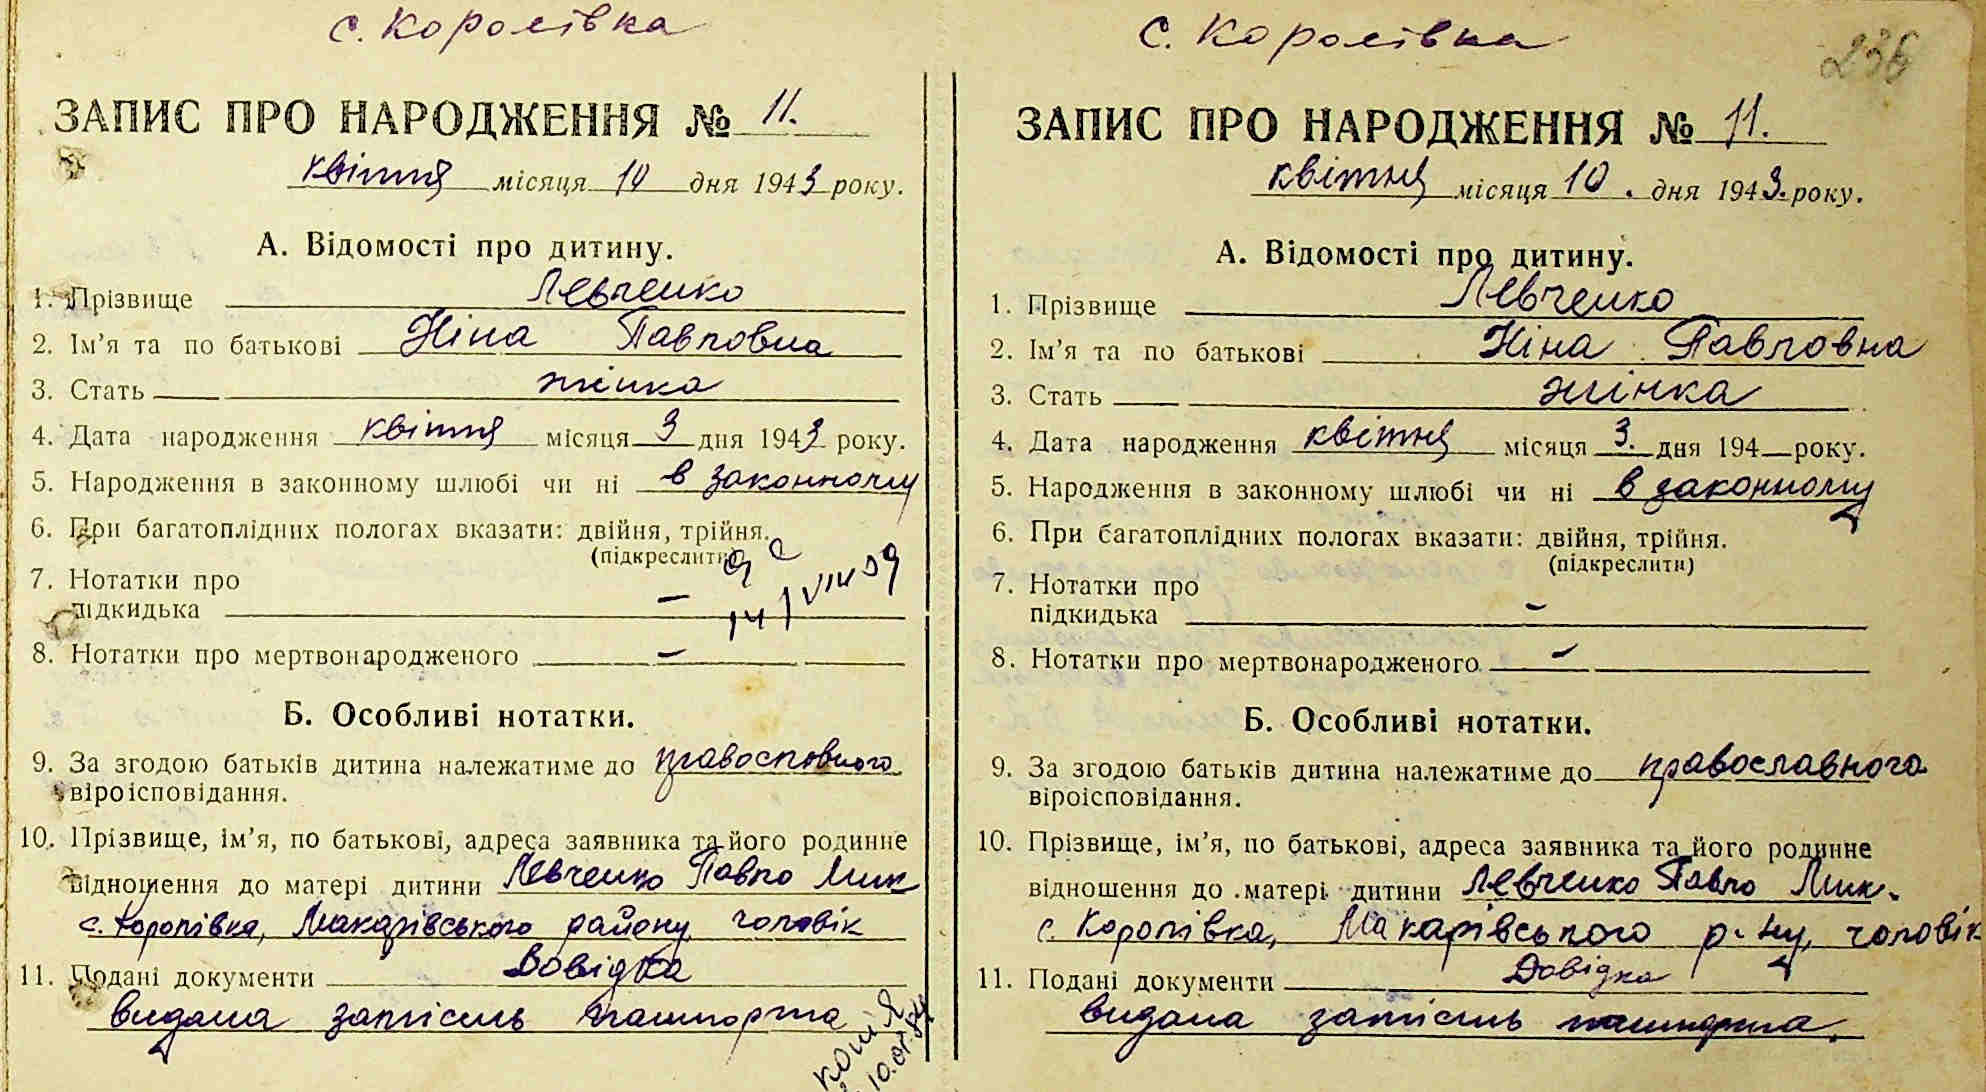 с. Королівка
ЗАПИС ПРО НАРОДЖЕННЯ № 11.
квітня місяця 10 дня 1943 року.
А. Відомості про дитину.
1. Прізвище Левченко
2. Ім'я та по батькові Ніна Павловна
3. Стать жінка
4. Дата народження квітня місяця 3 дня 1943 року.
5. Народження в законному шлюбі чи ні в законному
6. При багатоплідних пологах вказати: двійня, трійня.
(підкреслити)
7. Нотатки про
підкидька –
8. Нотатки про мертвонародженого –
Б. Особливі нотатки.
9. За згодою батьків дитина належатиме до православного
віроісповідання.
10. Прізвище, ім'я, по батькові, адреса заявника та його родинне
відношення до матері дитини Левченко Павло Мик
с. Королівка, Макарівського району, чоловік
11. Подані документи Довідка
видана замісць пашпорта
копія
с. Королівка
236
ЗАПИС ПРО НАРОДЖЕННЯ № 11.
квітня місяця 10. дня 1943. року.
А. Відомості про дитину.
1. Прізвище Левченко
2. Ім'я та по батькові Ніна Павловна
3. Стать жінка
4. Дата народження квітня місяця 3. дня 194 року.
5. Народження в законному шлюбі чи ні в законному
6. При багатоплідних пологах вказати: двійня, трійня.
(підкреслити)
7. Нотатки про
підкидька –
8. Нотатки про мертвонародженого –
Б. Особливі нотатки.
9. За згодою батьків дитина належатиме до православного
віроісповідання.
10. Прізвище, ім'я, по батькові, адреса заявника та його родинне
відношення до матері дитини Левченко Павло Мик.
с. Королівка, Макарівського р-ну, чоловік
11. Подані документи Довідка
видана замісць пашпорта.